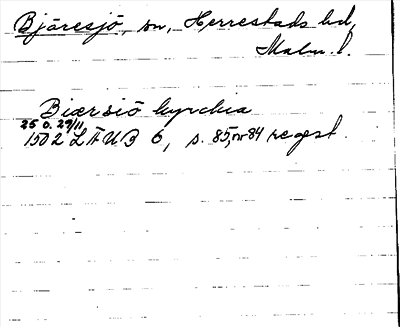 Bjäresjö sn, Herrestads hd,
Malm. l.
Biærsiö kyrchia
25 o. 29/11
1502 LÄUB 6, s. 85, nr 84 regest.